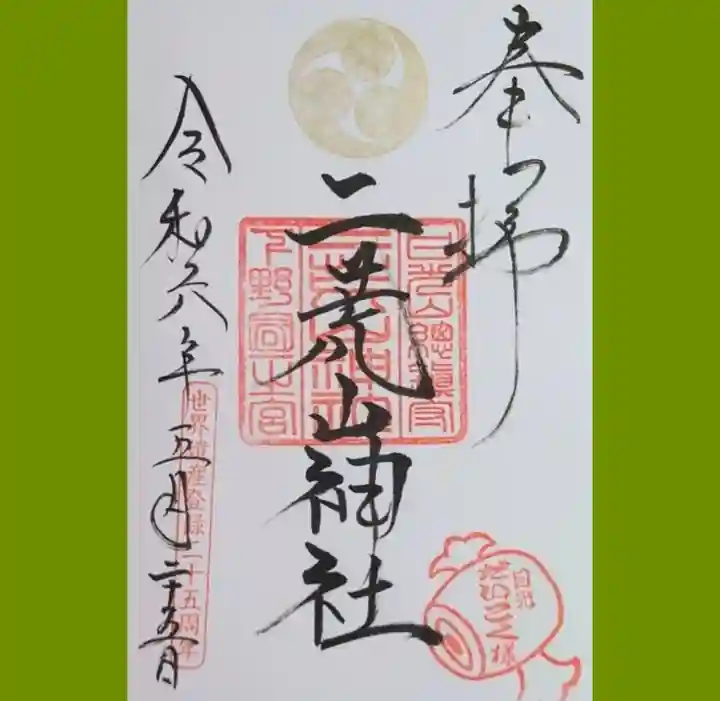 奉拝
二荒山神社
日光山總鎮守
二荒山神社
下野國一之宮
日光
だいこく様
令和六年五月二十五日
世界遺産登録二十五周年